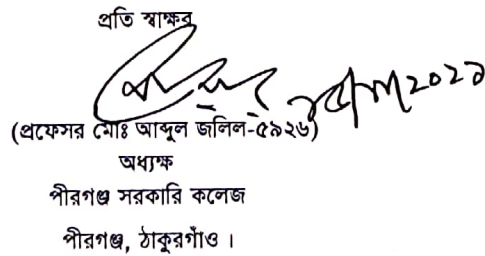 প্রতি স্বাক্ষর
(প্রফেসর মোঃ আব্দুল জলিল-৫৯২৬)
অধ্যক্ষ
পীরগঞ্জ সরকারি কলেজ
পীরগঞ্জ, ঠাকুরগাঁও ।